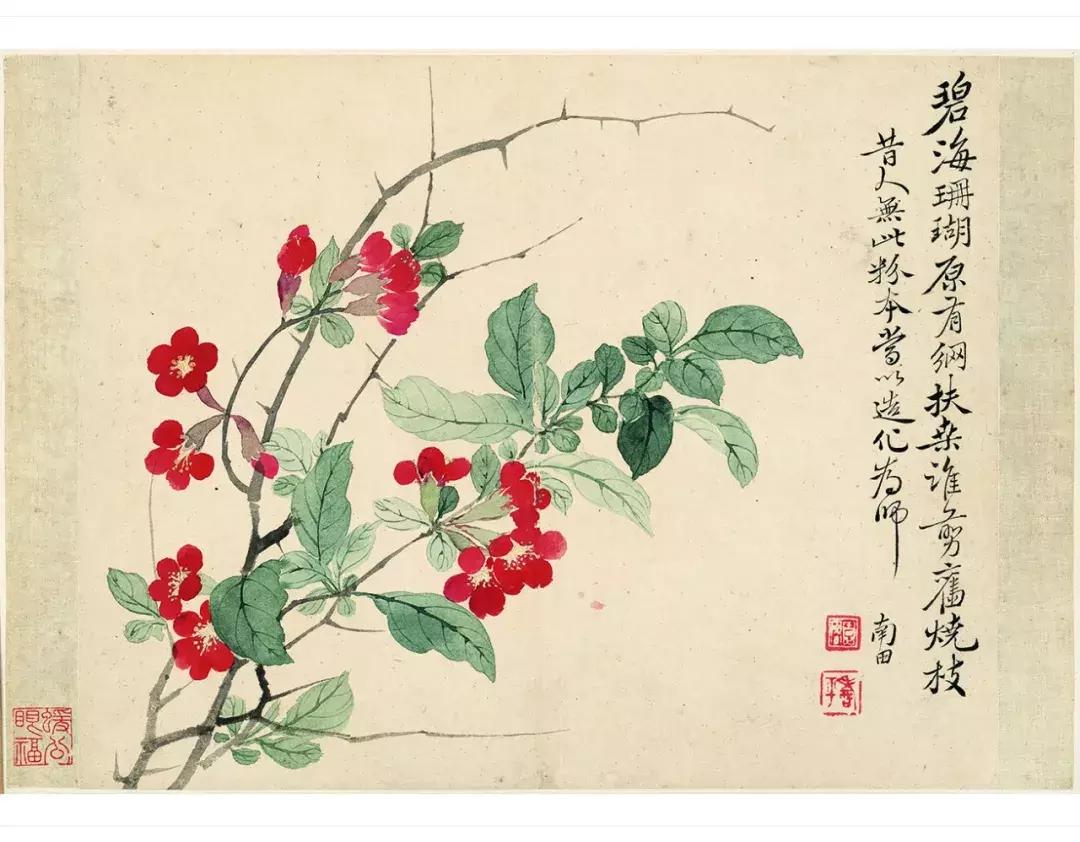 碧海珊瑚原有綱扶桒誰剪舊燒枝
昔人無此粉本當以造化為師
南田
眼福